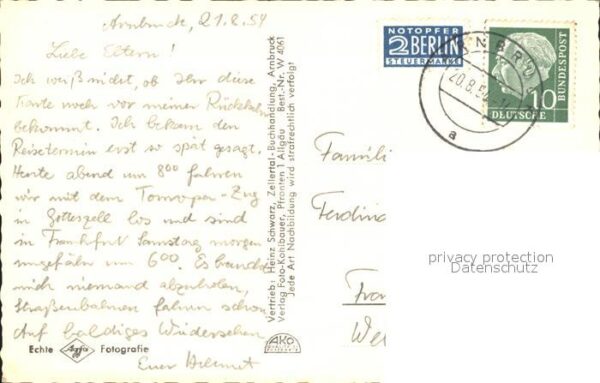 Arnbruck, 21.8.54
Liebe Eltern!
Ich weiß nicht, ob Ihr diese
Karte noch vor meiner Rückkehr
bekommt. Ich bekam den
Reisetermin erst so spät gesagt.
Heute abend um 8⁰⁰ fahren
wir mit dem Touropa-Zug
in Gotteszell los und sind
in Frankfurt Samstag morgen
ungefähr um 6⁰⁰. Es braucht
mich niemand abzuholen,
Straßenbahnen fahren schon.
Auf baldiges Wiedersehen
Euer Helmut
Echte Agfa Fotografie
Vertrieb: Heinz Schwarz, Zellertal-Buchhandlung, Arnbruck
Verlag Foto-Kohlbauer, Pfronten 1 Allgäu Best.-Nr. W 4061
Jede Art Nachbildung wird strafrechtlich verfolgt
AKO
NOTOPFER
2 BERLIN
STEUERMARKE
20.8.54
a
10
DEUTSCHE
BUNDESPOST
Famili
Ferdin
Fra
We
privacy protection
Datenschutz